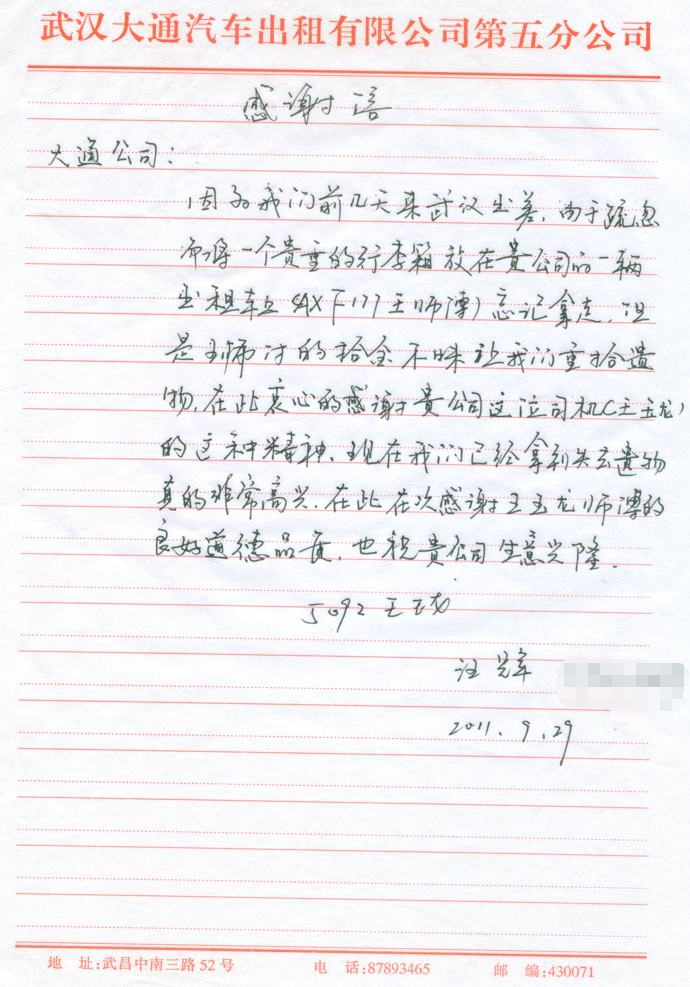 武汉大通汽车出租有限公司第五分公司
感谢信
大通公司：
因为我们前几天来武汉出差，由于疏忽
而将一个贵重的行李箱放在贵公司的一辆
出租车上（AX下177王师傅）忘记拿走，但
是王师付的拾金不昧让我们重拾遗
物，在此衷心的感谢贵公司这位司机（王玉龙）
的这种精神，现在我们已经拿到失去遗物
真的非常高兴，在此在次感谢王玉龙师傅的
良好道德品质，也祝贵公司生意兴隆．
5092 王玉龙
汪
2011．9．29
地 址：武昌中南三路52号 电 话：87893465 邮 编：430071